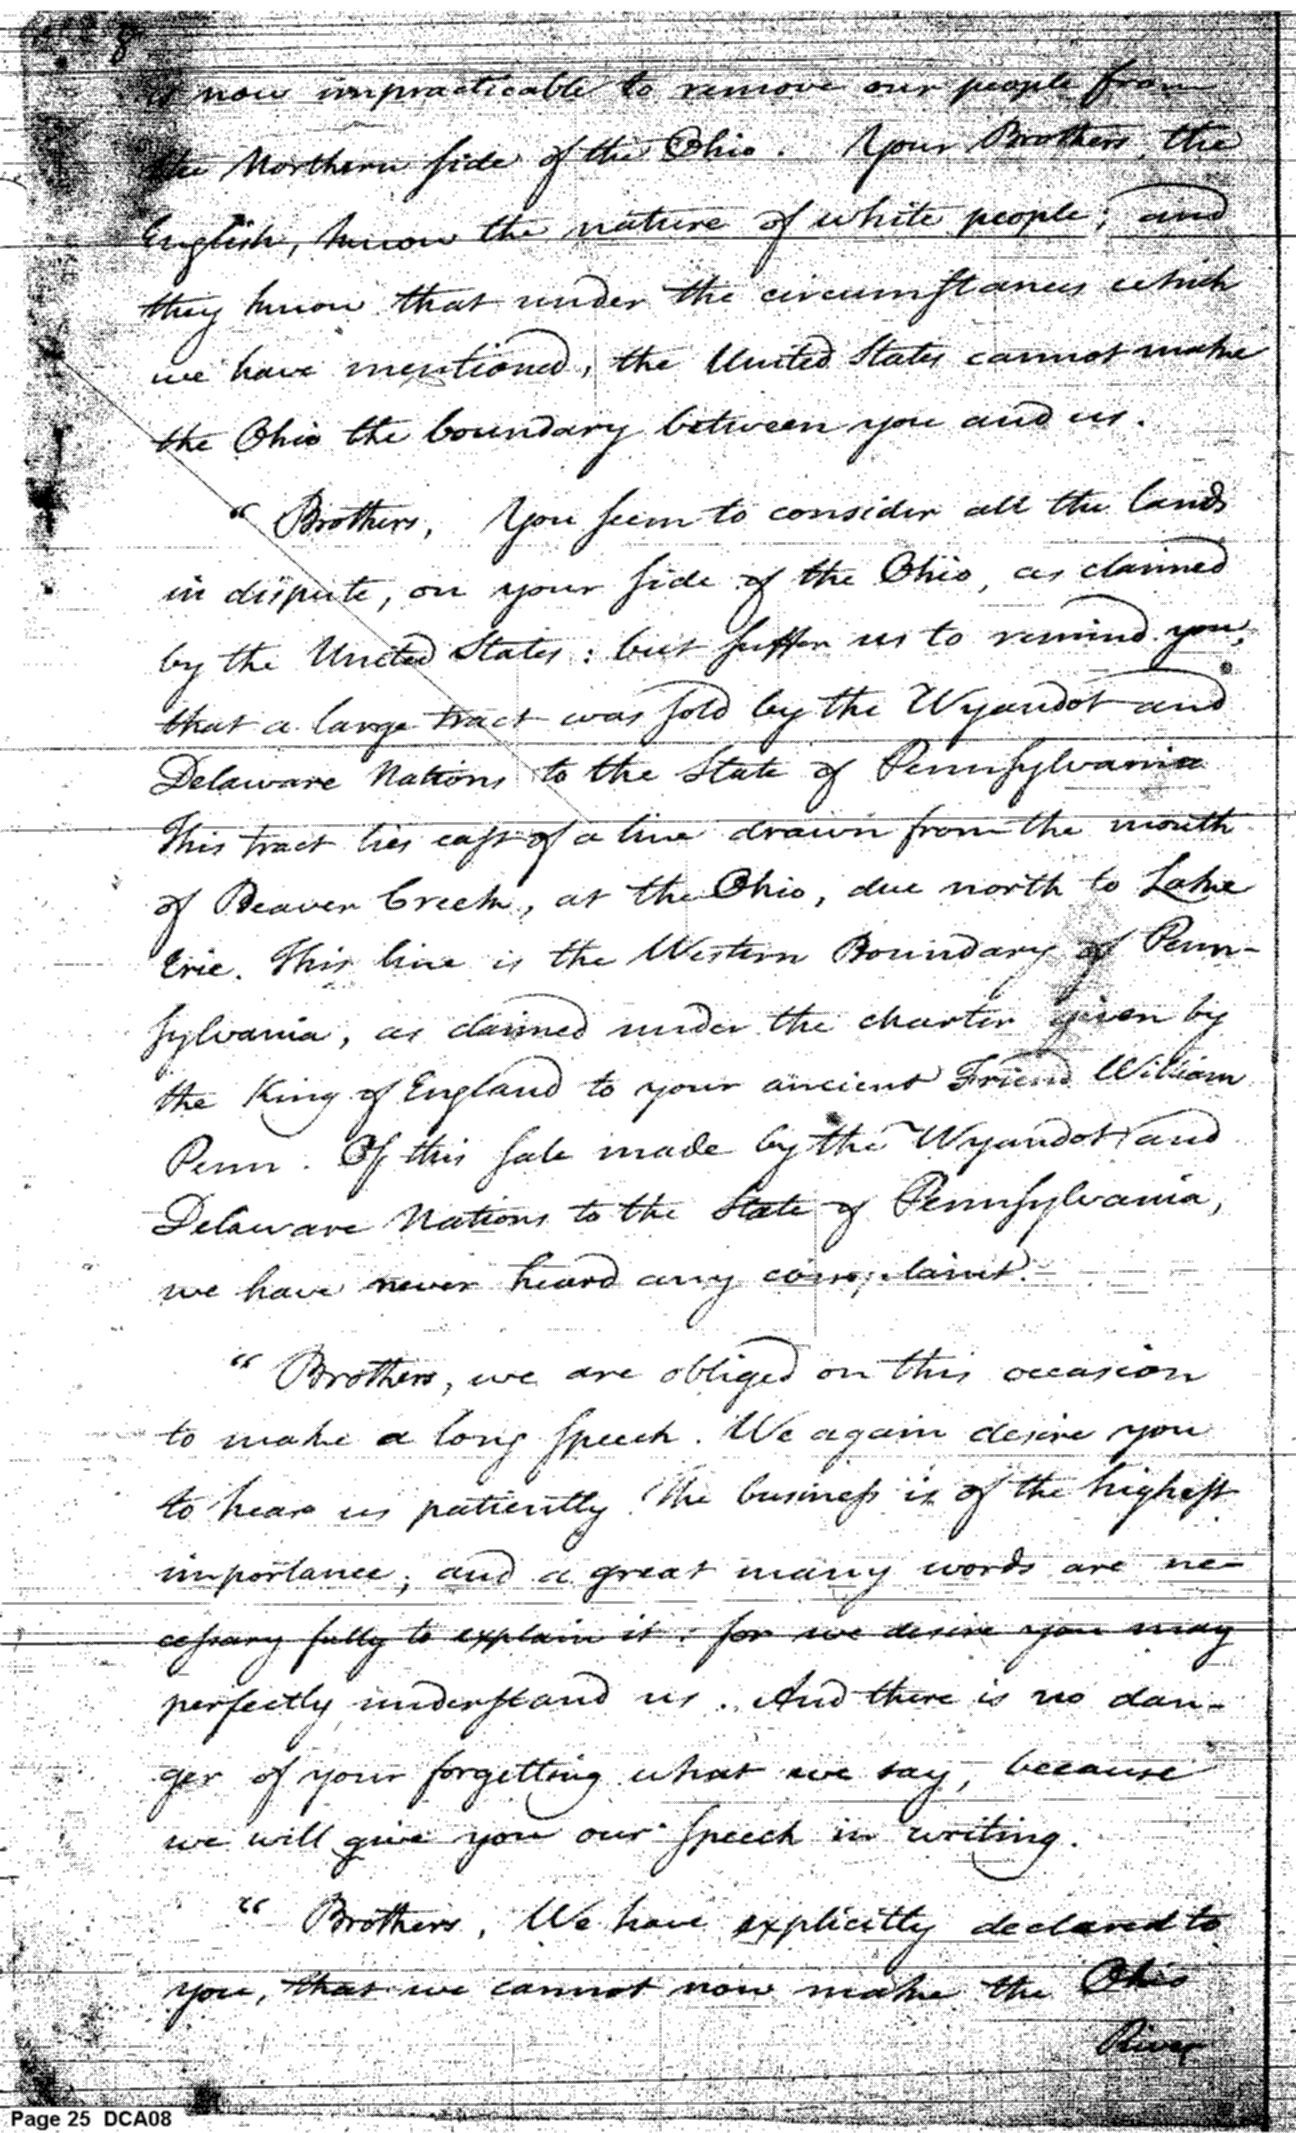 8
is now impracticable to remove our people from
the Northern side of the Ohio. Your Brothers, the
English, know the nature of white people; and
they know that under the circumstances which
we have mentioned, the United States cannot make
the Ohio the boundary between you and us.
“ Brothers, You seem to consider all the lands
in dispute, on your side of the Ohio, as claimed
by the United States: but suffer us to remind you,
that a large tract was sold by the Wyandot and
Delaware Nations to the State of Pennsylvania
This tract lies east of a line drawn from the mouth
of Beaver Creek, at the Ohio, due north to Lake
Erie. This line is the Western Boundary of Penn-
sylvania, as claimed under the charter given by
the King of England to your ancient Friend William
Penn. Of this sale made by the Wyandot and
Delaware Nations to the State of Pennsylvania,
we have never heard any complaint.
“ Brothers, we are obliged on this occasion
to make a long speech. We again desire you
to hear us patiently. The business is of the highest
importance; and a great many words are ne-
cessary fully to explain it: for we desire you may
perfectly understand us. And there is no dan-
ger of your forgetting what we say, because
we will give you our speech in writing.
“ Brothers, We have explicitly declared to
you, that we cannot now make the Ohio
River
Page 25 DCA08